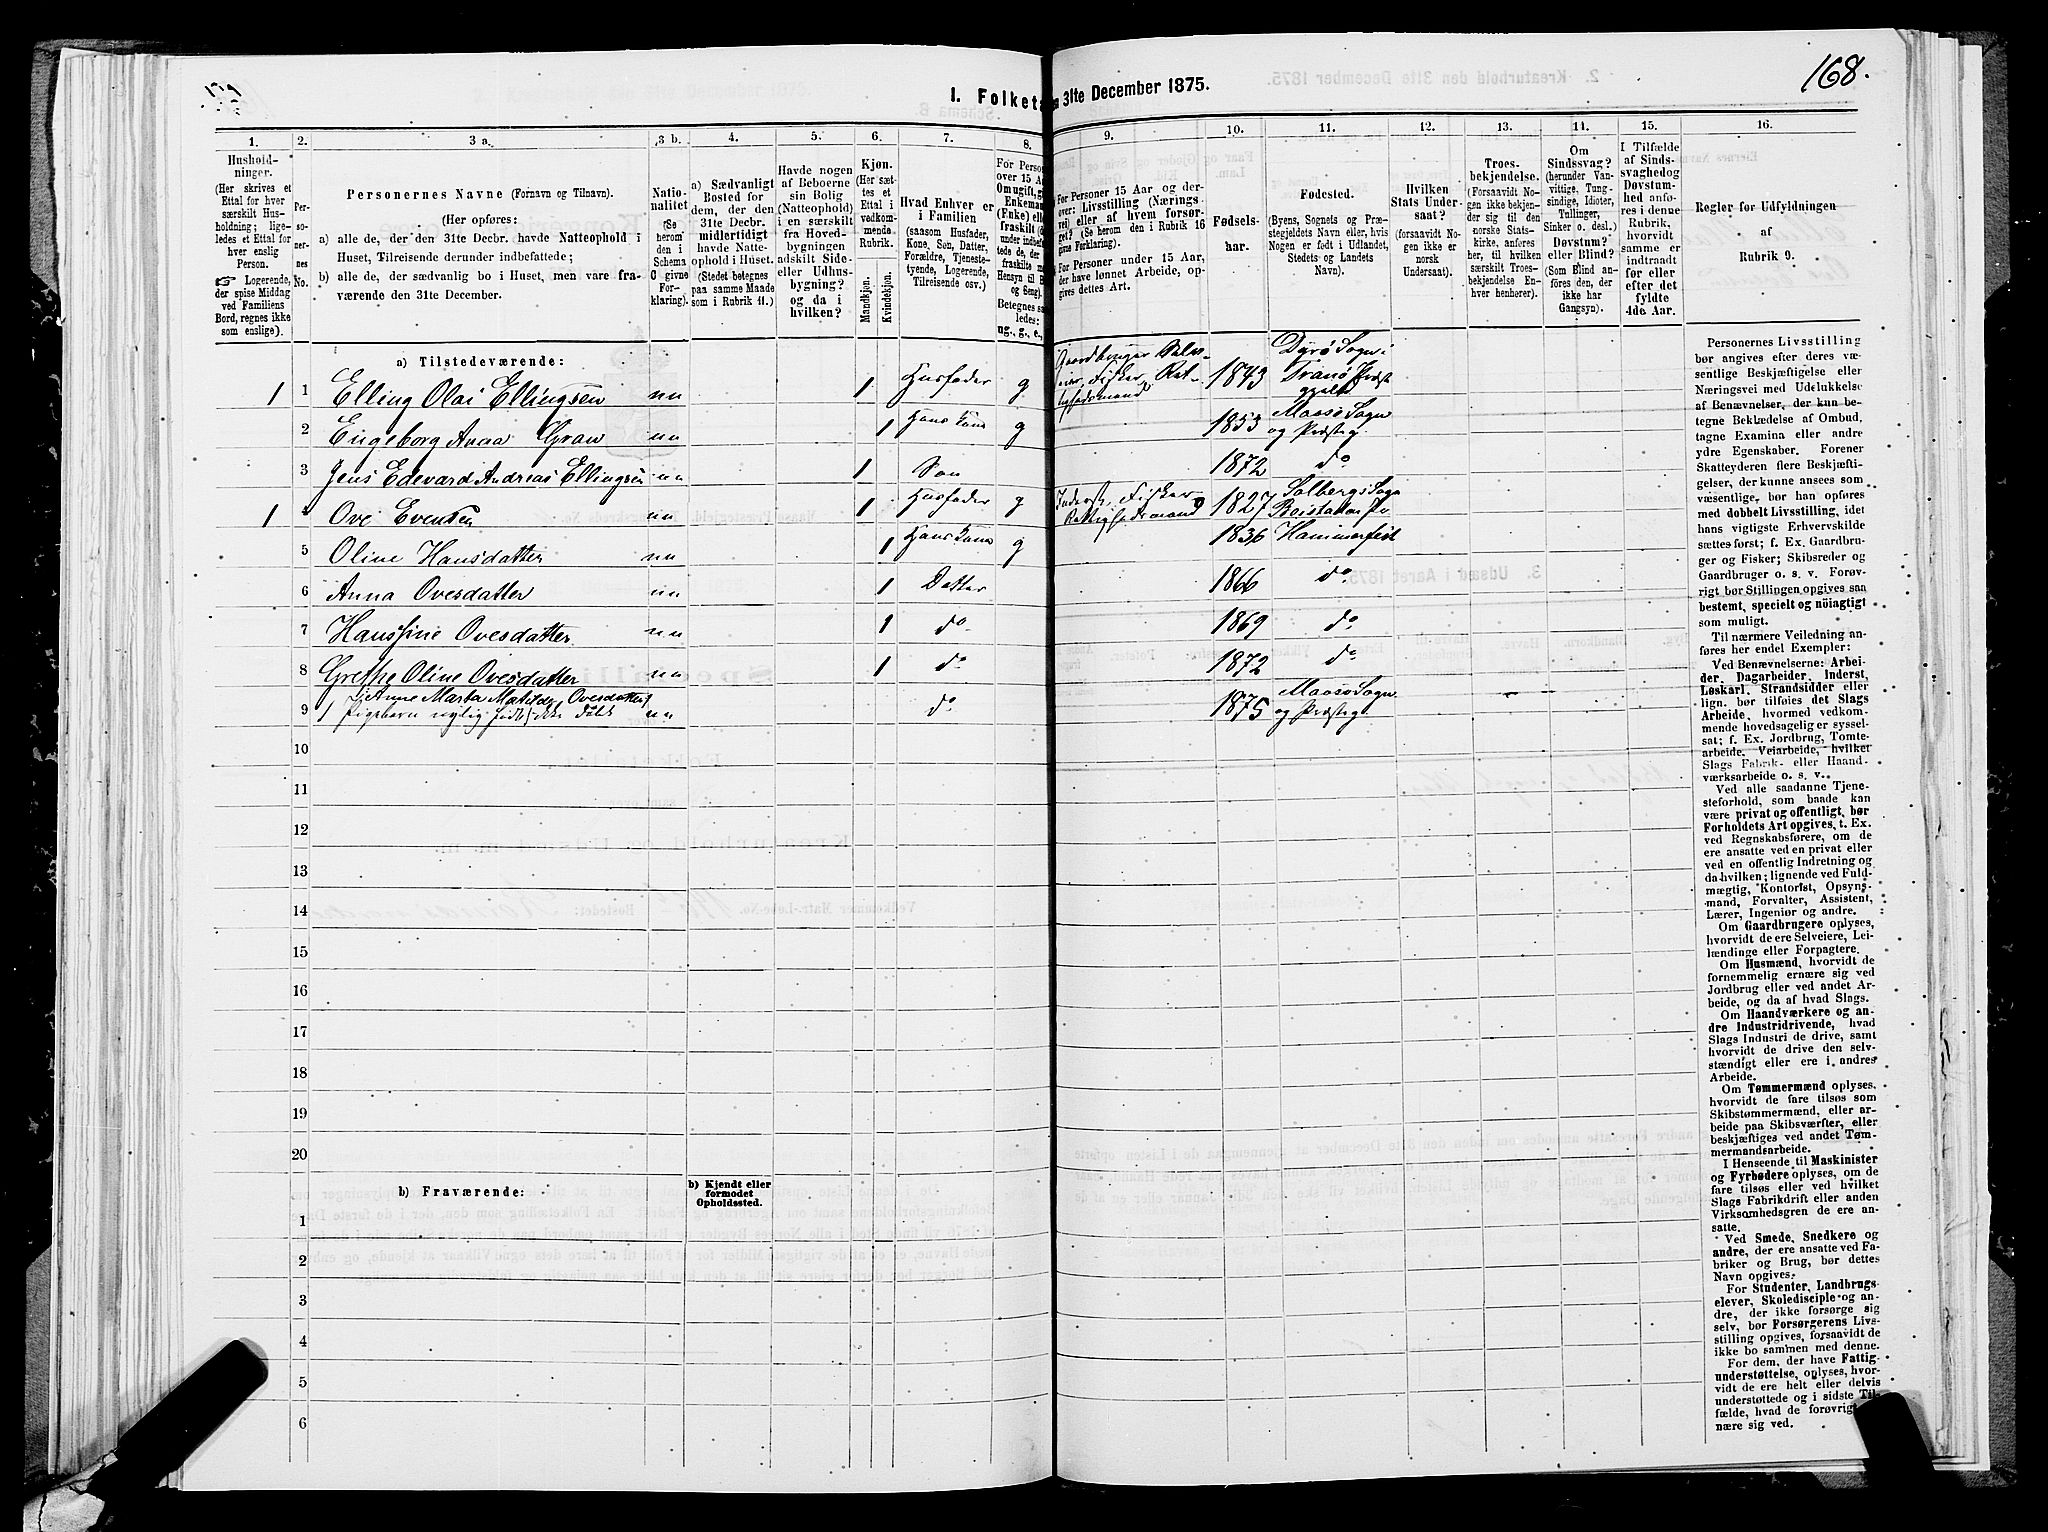 168.
I. Folketæ
a 31te December 1875.
1.
2.
3 a.
3 b.
4.
5.
6.
7.
8.
9.
10.
11.
12.
13.
14.
15.
16.
Hushold-
ninger.
(Her skrives et
Ettal for hver
særskilt Hus-
holdning; lige-
ledes et Ettal for
hver enslig
Person.
☛ Logerende,
der spise Middag
ved Familiens
Bord, regnes ikke
som enslige).
Per-
so-
ner-
nes
No.
Personernes Navne (Fornavn og Tilnavn).
(Her opføres:
a) alle de, der den 31te Decbr. havde Natteophold i
Huset, Tilreisende derunder indbefattede;
b) alle de, der sædvanlig bo i Huset, men vare fra-
værende den 31te December.
Natio-
nalitet
(Se
herom
den i
Schema
C givne
For-
klaring).
a) Sædvanligt
Bosted for
dem, der den
31te Decbr.
midlertidigt
havde Natte-
ophold i Huset.
(Stedet betegnes
paa samme Maade
som i Rubrik 11.)
Havde nogen
af Beboerne
sin Bolig
(Natteophold)
i en særskilt
fra Hoved-
bygningen
adskilt Side-
eller Udhus-
bygning?
og da i
hvilken?
Kjøn.
(Her sæt-
tes et
Ettal i
vedkom-
mende
Rubrik.
Mandkjøn.
Kvindekjøn.
Hvad Enhver er
i Familien
(saasom Husfader,
Kone, Søn, Datter,
Forældre, Tjeneste-
tyende, Logerende,
Tilreisende osv.)
For Person
over 15 A
Om ugift, gi
Enkeman
(Fnke) elle
fraskilt (d
under indbefat-
tede de, de
fraskilte m
Hensyn til B
og Seng).
Betegnes sa
ledes:
ug., g., e.,
For Personer 15 Aar og der-
over: Livsstilling (Nærings
vei) eller af hvem forsør-
get? (Se herom den i Rubrik 16
givne Førklaring).
For Personer under 15 Aar,
der have lønnet Arbeide, op-
gives dettes Art.
Fødsels-
aar.
Fødested.
(Byens, Sognets og Præ-
stegjeldets Navn eller, hvis
Nogen er født i Udlandet,
Stedets og Landets
Navn).
Hvilken
Stats Under-
saat?
(forsaavidt No-
gen ikke er
norsk
Undersaat).
Troes-
bekjendelse.
(Forsaavidt No-
gen ikke bekjen-
der sig til den
norske Stats-
kirke, anføres
her, til hvilken
særskilt Troes-
bekjendelse En-
hver henhører).
Om
Sindssvag?
(herunder Van-
vittige, Tung-
sindige, Idioter,
Tullinger,
Sinker o. desl.)
Døvstum?
eller Blind?
(Som Blind an-
føres den, der
ikke har
Gangsyn).
I Tilfælde
af Sinds-
svaghed og
Døvstum-
hed anfø-
res i denne
Rubrik,
hvorvidt
samme er
indtraadt
før eller
efter det
fyldte
4de Aar.
Regler for Udfyldningen
af
Rubrik 9.
a) Tilstedeværende:
1 1 Elling Olai Ellingsen nu 1 Husfader g 1843 Dyrø Sogn i Tranø
2 Engeborg Anna Gran nu 1 Hans Kone g 1853 Maasø Sogn og Præsteg.
3 Jens Edevard Andreas Ellingsen nu 1 Søn 1872 do
1 4 Ove Evensen nu 1 Husfader g Inderst, Fisker Rettighedsmand 1827 Solbergs Sogn
5 Oline Hansdatter nu 1 Hans Kone g 1836 Hammerfest
6 Anna Ovesdatter nu 1 Datter 1866 do
7 Hansine Ovesdatter nu 1 do 1869 do
8 Grethe Oline Ovesdatter nu 1 do 1872 do
9 1 Anne Marta Matilde Ovesdatter
Pigebarn nylig født, ikke døbt nu do 1875 Maasø Sogn og Præsteg
10
11
12
13
14
15
16
17
18
19
20
b) Fraværende:
b) Kjendt eller
formodet
Opholdssted.
1
2
3
4
5
6
Personernes Livsstilling
bør angives efter deres væ-
sentlige Beskjæftigelse eller
Næringsvei med Udelukkelse
af Benævnelser, der kun be-
tegne Beklædelse af Ombud,
tagne Examina eller andre
ydre Egenskaber. Forener
Skatteyderen flere Beskjæfti-
gelser, der kunne ansees som
væsentlige, bør han opføres
med dobbelt Livsstilling, idet
hans vigtigste Erhvervskilde
sættes først; f. Ex. Gaardbru-
ger og Fisker; Skibsreder og
Gaardbruger o. s. v. Forøv-
rigt bør Stillingen opgives saa
bestemt, specielt og nöiagtigt
som muligt.
Til nærmere Veiledning an-
føres her endel Exempler:
Ved Benævnelserne: Arbei-
der, Dagarbeider, Inderst,
Løskarl, Strandsidder eller
lign. bør tilføies det Slags
Arbeide, hvormed vedkom-
mende hovedsagelig er syssel-
sat; f. Ex. Jordbrug, Tomte-
arbeide, Veiarbeide, hvilket
Slags Fabrik- eller Haand-
værksarbeide o. s. v.
Ved alle saadanne Tjene-
steforhold, som baade kan
være privat og offentligt, bør
Forholdets Art opgives, t. Ex.
ved Regnskabsførere, om de
ere ansatte ved en privat eller
ved en offentlig Indretning og
da hvilken; lignende ved Fuld-
mægtig, Kontorist, Opsyns-
mand, Forvalter, Assistent,
Lærer, Ingeniør og andre.
Om Gaardbrugere oplyses,
hvorvidt de ere Selveiere, Lei-
lændinge eller Forpagtere.
Om Husmænd, hvorvidt de
fornemmelig ernære sig ved
Jordbrug eller ved andet Ar-
beide, og da af hvad Slags.
Om Haandværkere og an-
dre Industridrivende, hvad
Slags Industri de drive, samt
hvorvidt de drive den selv-
stændigt eller ere i andres
Arbeide.
Om Tømmermænd oplyses,
hvorvidt de fare tilsøs som
Skibstømmermænd, eller ar-
beide paa Skibsværfter, eller
beskjæftiges ved andet Tøm-
mermandsarbeide.
I Henseende til Maskinister
og Fyrbødere oplyses, om de
fare tilsøs eller ved hvilket
Slags Fabrikdrift eller anden
Virksomhedsgren de ere an-
satte.
Ved Smede, Snedkere og
andre, der ere ansatte ved Fa-
briker og Brug, bør dettes
Navn opgives.
For Studenter, Landbrugs-
elever, Skoledisciple og an-
dre, der ikke forsørge sig
selv, bør Forsørgerens Livs-
stilling opgives, forsaavidt de
ikke bo sammen med denne.
For dem, der have Fattig-
understøttelse, oplyses, hvor-
vidt de ere helt eller delvis
understøttede og i sidste Til-
fælde, hvad de forøvrigt er-
nære sig ved.